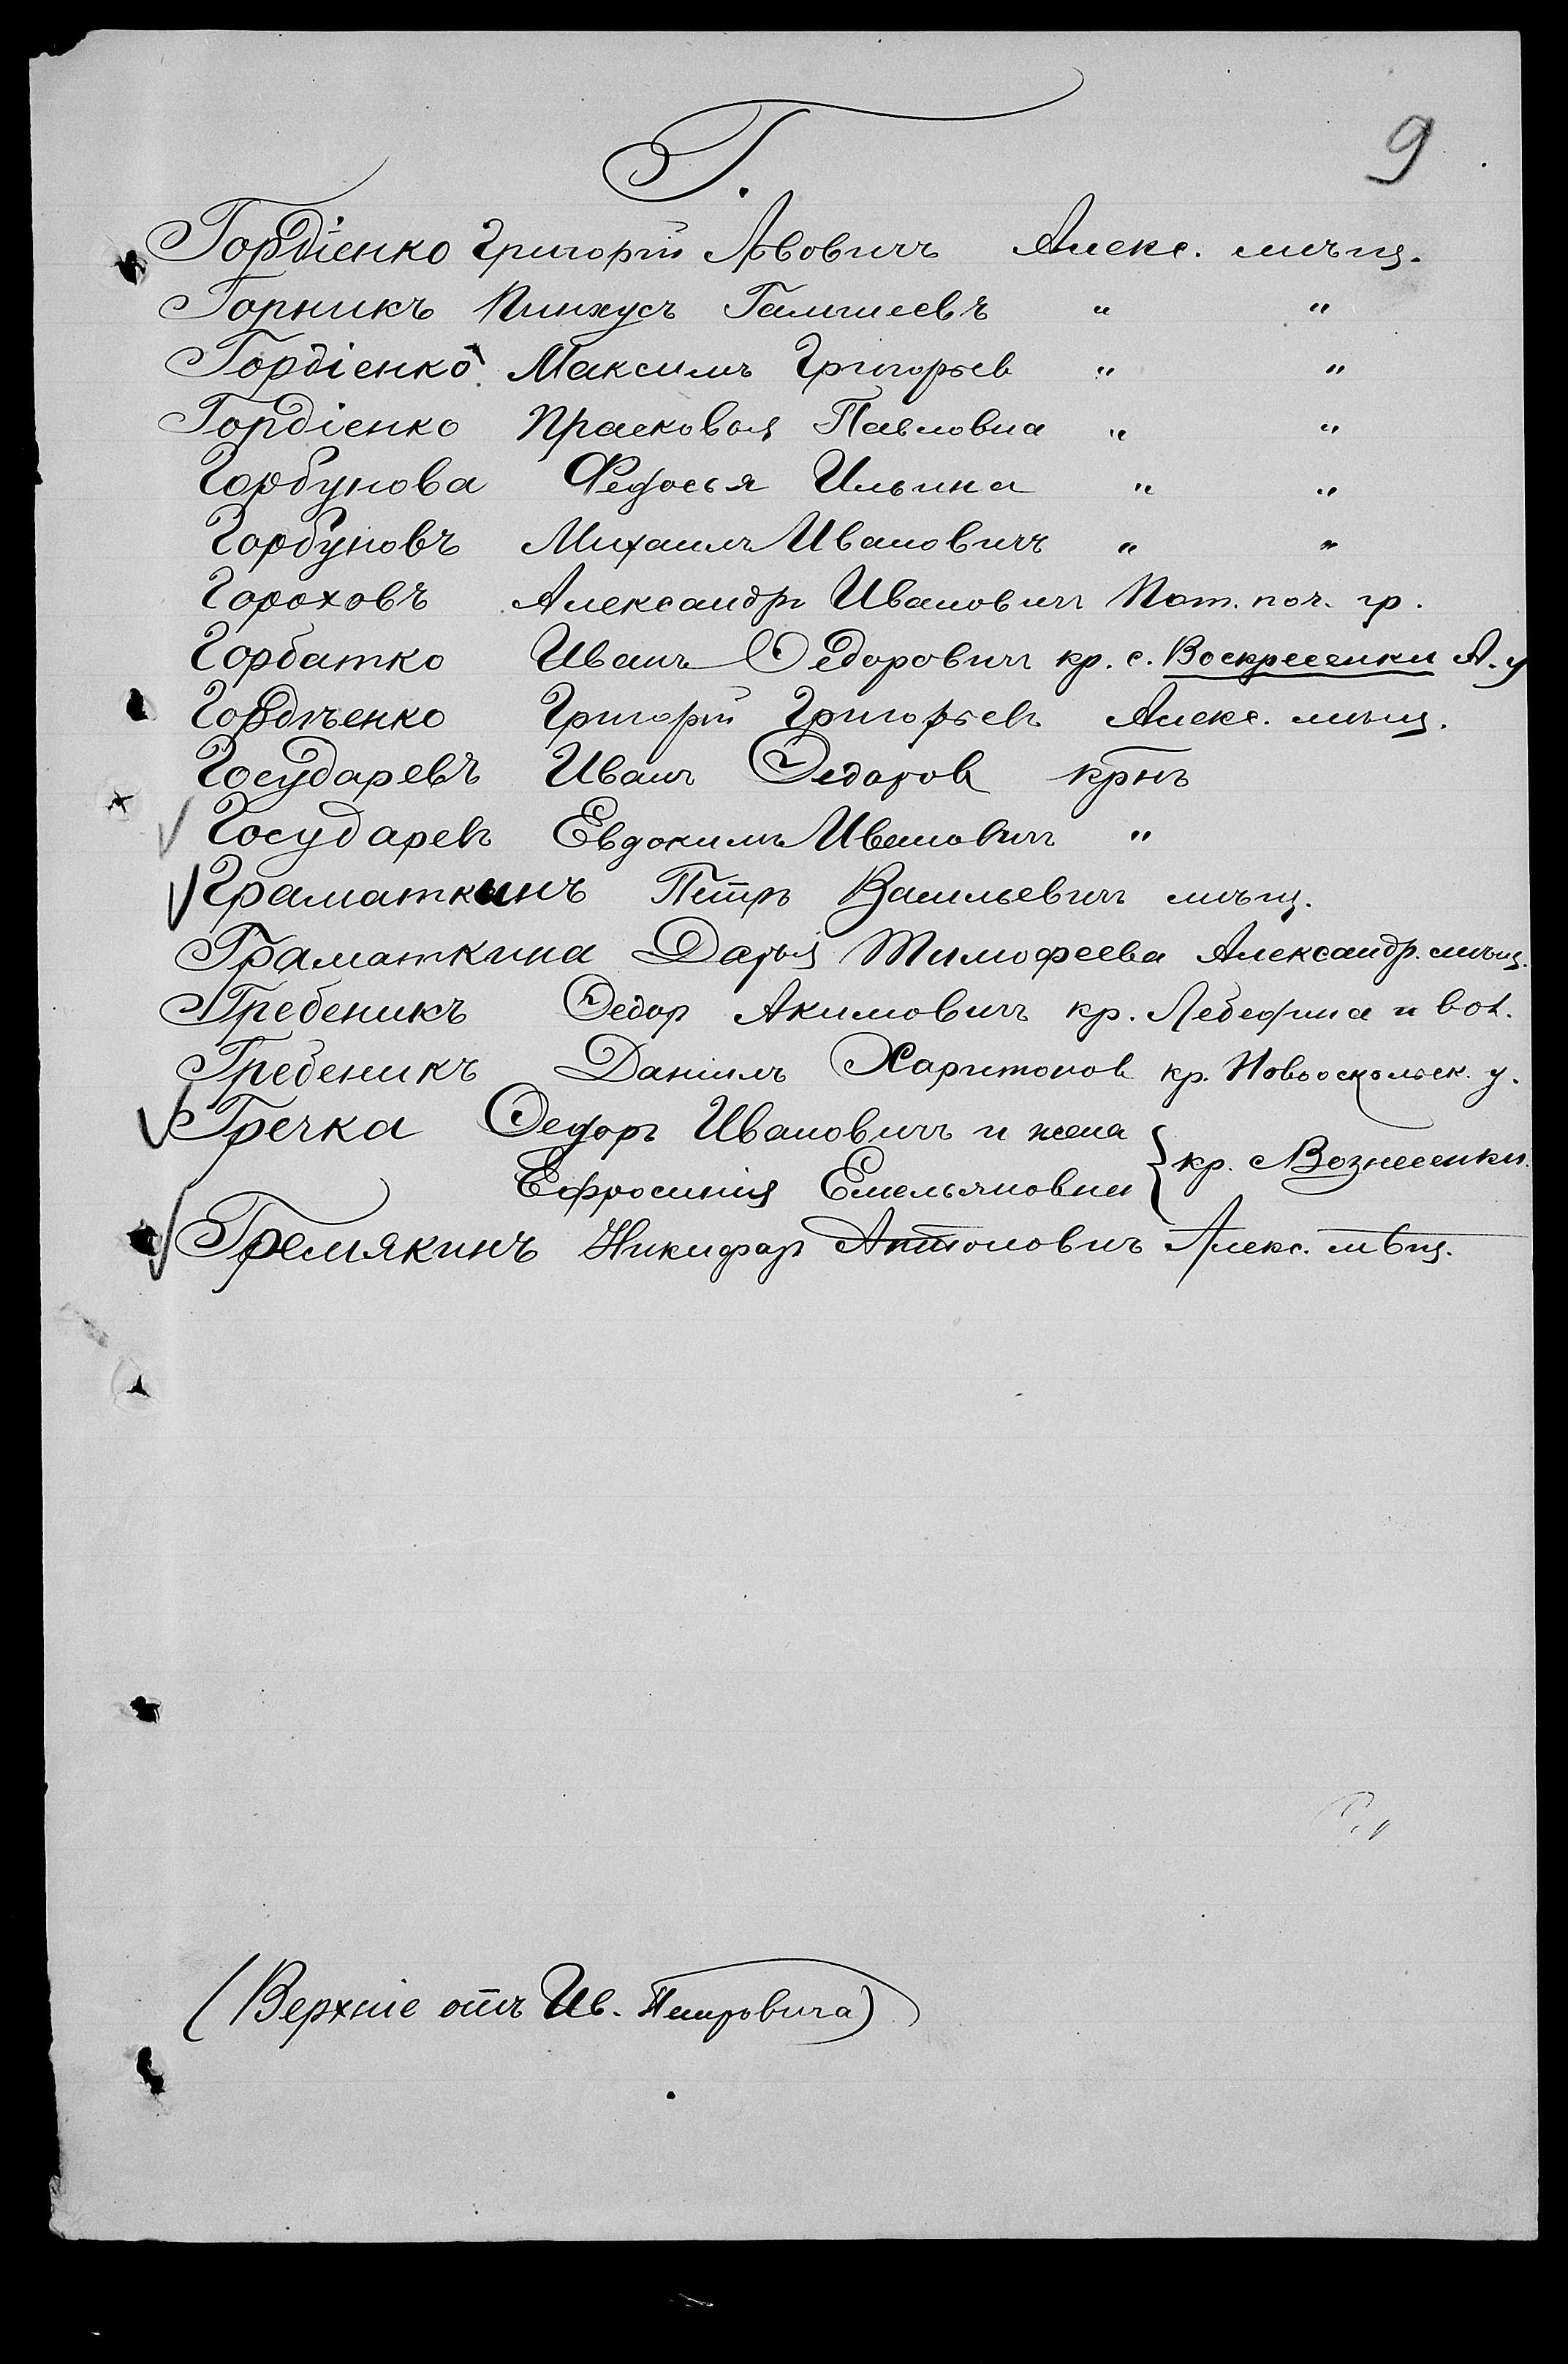 9
Г.
Гордіенко Григорій Львовичъ Алекс. мѣщ.
Горникъ Пинхусъ Гамшеевъ " "
Гордіенко Максимъ Григорьев " "
Гордіенко Прасковья Павловна " "
Горбунова Федосья Ильина " "
Горбуновъ Михаилъ Ивановичъ " "
Гороховъ Александръ Ивановичъ Пот. поч. гр.
Горбатко Иванъ Ѳедоровичъ кр. с. Воскресенки А. у
Гордѣенко Григорій Григорьевъ Алекс. мѣщ.
Государевъ Иванъ Ѳедоров крнъ
Государевъ Евдокимъ Ивановичъ "
Граматкинъ Петръ Васильевичъ мѣщ.
Граматкина Дарья Тимофеева Александр. мѣщ.
Гребеникъ Ѳедор Акимовичъ кр. Лебедина и вол.
Гребеникъ Даніилъ Харитонов кр. Новооскольск. у.
Гречка Ѳедоръ Ивановичъ и жена
Ефросинія Емельяновна } кр. с Вознесенки.
Гремякинъ Никифоръ Антоновичъ Алекс. мѣщ.
(Верхніе отъ Ив. Петровича)